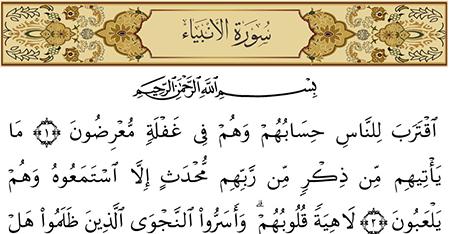 سُورَةُ الأَنبِيَاء
بِسْمِ اللَّهِ الرَّحْمَٰنِ الرَّحِيمِ
ٱقْتَرَبَ لِلنَّاسِ حِسَابُهُمْ وَهُمْ فِى غَفْلَةٍ مُّعْرِضُونَ ﴿١﴾ مَا
يَأْتِيهِم مِّن ذِكْرٍ مِّن رَّبِّهِم مُّحْدَثٍ إِلَّا ٱسْتَمَعُوهُ وَهُمْ
يَلْعَبُونَ ﴿٢﴾ لَاهِيَةً قُلُوبُهُمْ ۗ وَأَسَرُّوا۟ ٱلنَّجْوَى ٱلَّذِينَ ظَلَمُوا۟ هَلْ